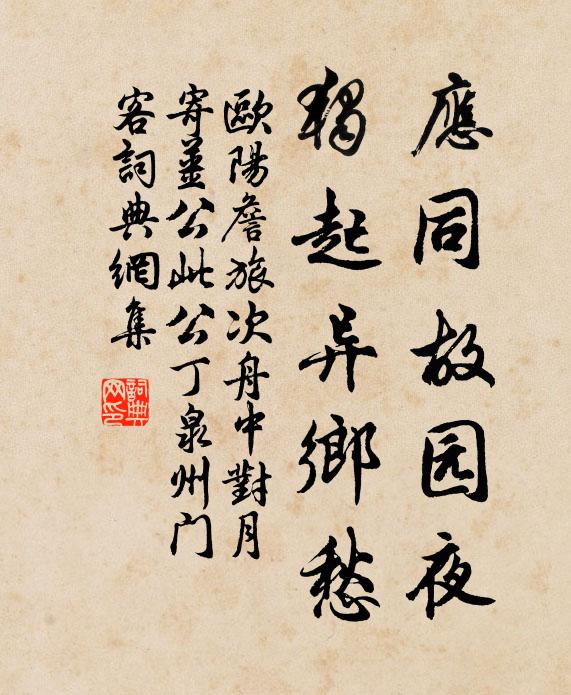 應同故园夜
獨起异鄉愁
歐陽詹旅次舟中對月
寄薑公此公丁泉州门
客詞典網集
詞典网印